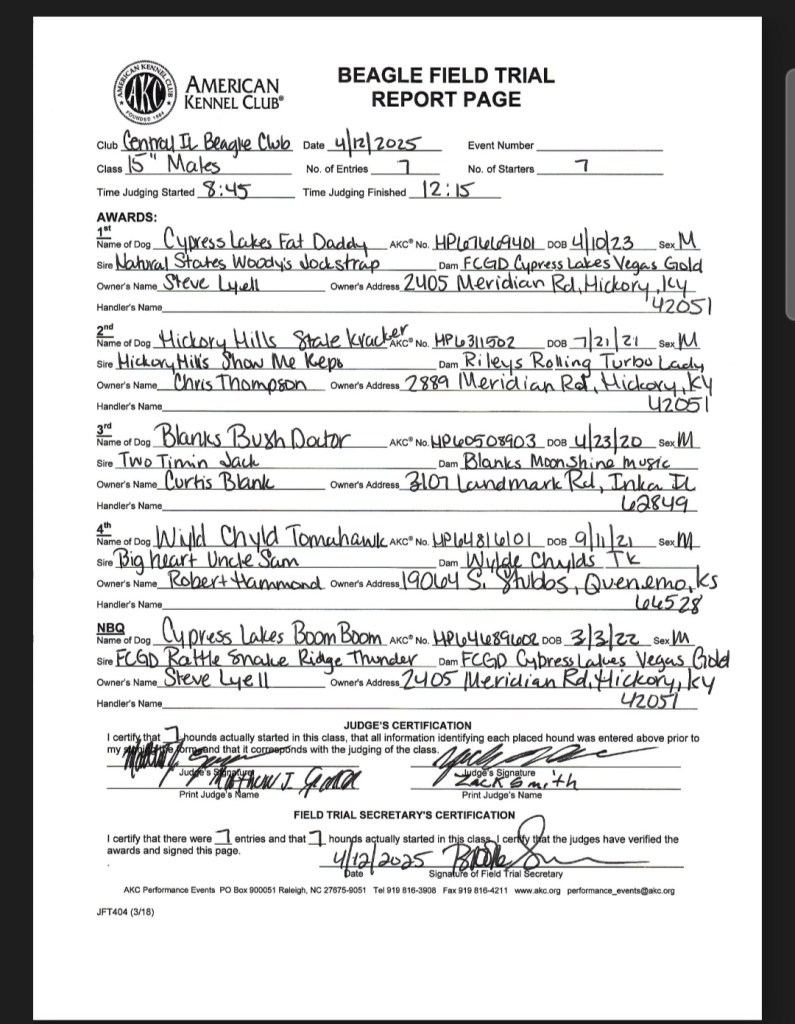 AMERICAN KENNEL CLUB
AKC
FOUNDED 1884
AMERICAN
KENNEL CLUB®
BEAGLE FIELD TRIAL
REPORT PAGE
Club Central IL Beagle Club Date 4/12/2025 Event Number
Class 15" Males No. of Entries 7 No. of Starters 7
Time Judging Started 8:45 Time Judging Finished 12:15
AWARDS:
1st
Name of Dog Cypress Lakes Fat Daddy AKC® No. HP67669401 DOB 4/10/23 Sex M
Sire Natural States Woody's Jockstrap Dam FCGD Cypress Lakes Vegas Gold
Owner's Name Steve Lyell Owner's Address 2405 Meridian Rd, Hickory, Ky
Handler's Name 42051
2nd
Name of Dog Hickory Hills Stale Kracker AKC® No. HP6311502 DOB 7/21/21 Sex M
Sire Hickory Hills Show Me Keps Dam Rileys Rolling Turbo Lady
Owner's Name Chris Thompson Owner's Address 2889 Meridian Rd, Hickory, KY
Handler's Name 42051
3rd
Name of Dog Blanks Bush Doctor AKC® No. HP60508903 DOB 4/23/20 Sex M
Sire Two Timin Jack Dam Blanks Moonshine music
Owner's Name Curtis Blank Owner's Address 3107 Landmark Rd, Inka IL
Handler's Name 62849
4th
Name of Dog Wyld Chyld Tomahawk AKC® No. HP64816101 DOB 9/11/21 Sex M
Sire Big heart Uncle Sam Dam Wylde Chylds TK
Owner's Name Robert Hammond Owner's Address 19064 S. Stubbs, Quenemo, KS
Handler's Name 66528
NBQ
Name of Dog Cypress Lakes Boom Boom AKC® No. HP64689602 DOB 3/3/22 Sex M
Sire FCGD Rattle Snake Ridge Thunder Dam FCGD Cypress Lakes Vegas Gold
Owner's Name Steve Lyell Owner's Address 2405 Meridian Rd, Hickory, Ky
Handler's Name 42051
JUDGE'S CERTIFICATION
I certify that 7 hounds actually started in this class, that all information identifying each placed hound was entered above prior to
my signing the form and that it corresponds with the judging of the class.
Judge's Signature Judge's Signature
Matthew J. Zack Smith
Print Judge's Name Print Judge's Name
FIELD TRIAL SECRETARY'S CERTIFICATION
I certify that there were 7 entries and that 7 hounds actually started in this class. I certify that the judges have verified the
awards and signed this page.
4/12/2025
Date Signature of Field Trial Secretary
AKC Performance Events PO Box 900051 Raleigh, NC 27675-9051 Tel 919 816-3908 Fax 919 816-4211 www.akc.org performance_events@akc.org
JFT404 (3/18)